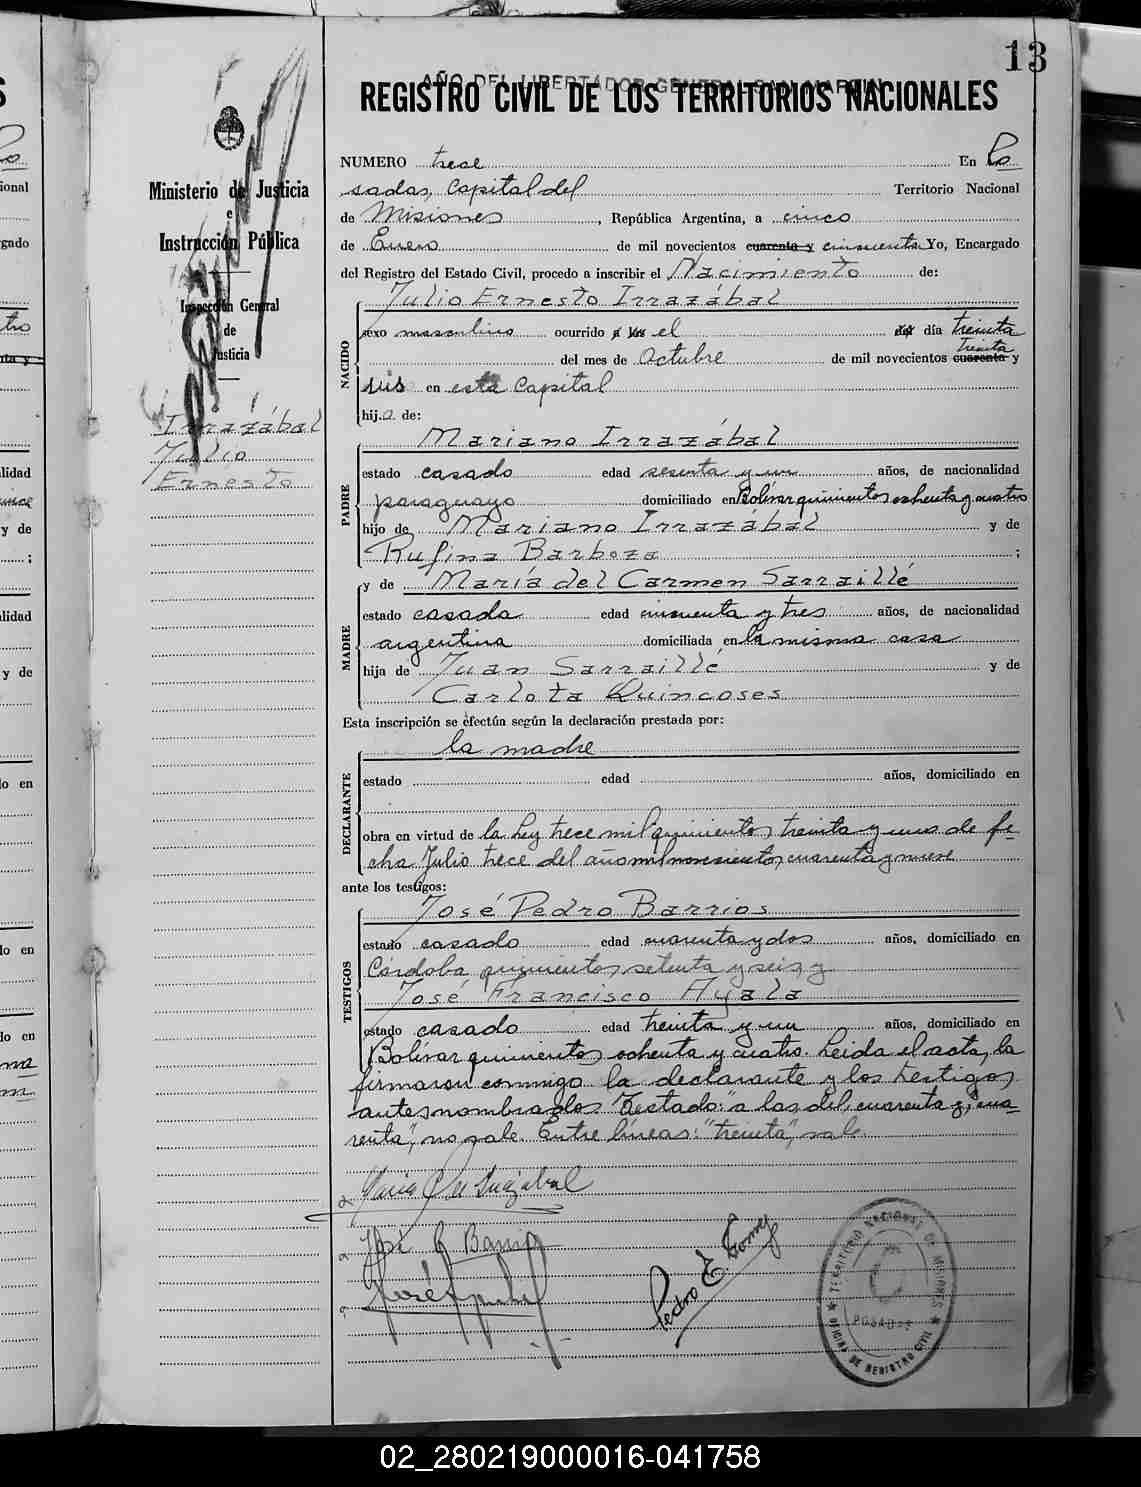 13
AÑO DEL LIBERTADOR GENERAL SAN MARTIN
REGISTRO CIVIL DE LOS TERRITORIOS NACIONALES
Ministerio de Justicia
e
Instrucción Pública
Inspección General
de
Justicia
Irrazábal
Julio
Ernesto
NUMERO trece En Po
sadas, Capital del Territorio Nacional
de Misiones, República Argentina, a cinco
de Enero de mil novecientos cuarenta y cincuenta Yo, Encargado
del Registro del Estado Civil, procedo a inscribir el Nacimiento de:
Julio Ernesto Irrazábal
NACIDO
sexo masculino ocurrido a las el del día treinta
treinta
del mes de Octubre de mil novecientos cuarenta y
seis en esta Capital
hijo de:
Mariano Irrazábal
PADRE
estado casado edad sesenta y un años, de nacionalidad
paraguayo domiciliado en Bolívar quinientos ochenta y cuatro
hijo de Mariano Irrazábal y de
Rufina Barboza ;
y de María del Carmen Sarraillé
MADRE
estado casada edad cincuenta y tres años, de nacionalidad
argentina domiciliada en la misma casa
hija de Juan Sarraillé y de
Carlota Quincoses
Esta inscripción se efectúa según la declaración prestada por:
la madre
DECLARANTE
estado edad años, domiciliado en
obra en virtud de la Ley trece mil quinientos treinta y uno de fe-
cha Julio trece del año mil novecientos cuarenta y nueve
ante los testigos:
José Pedro Barrios
TESTIGOS
estado casado edad cuarenta y dos años, domiciliado en
Córdoba quinientos setenta y seis y
José Francisco Ayala
estado casado edad treinta y un años, domiciliado en
Bolívar quinientos ochenta y cuatro. Leida el acta, la
firmaron conmigo la declarante y los testigos
antes nombrados. Testado: "a las, del, cuarenta y, cua-
renta", no vale. Entre líneas: "treinta", vale.
María C de Irrazábal
José P Barrios
José Ayala
Pedro E.
TERRITORIO NACIONAL DE MISIONES
POSADAS
OFICINA DE REGISTRO CIVIL
02_280219000016-041758